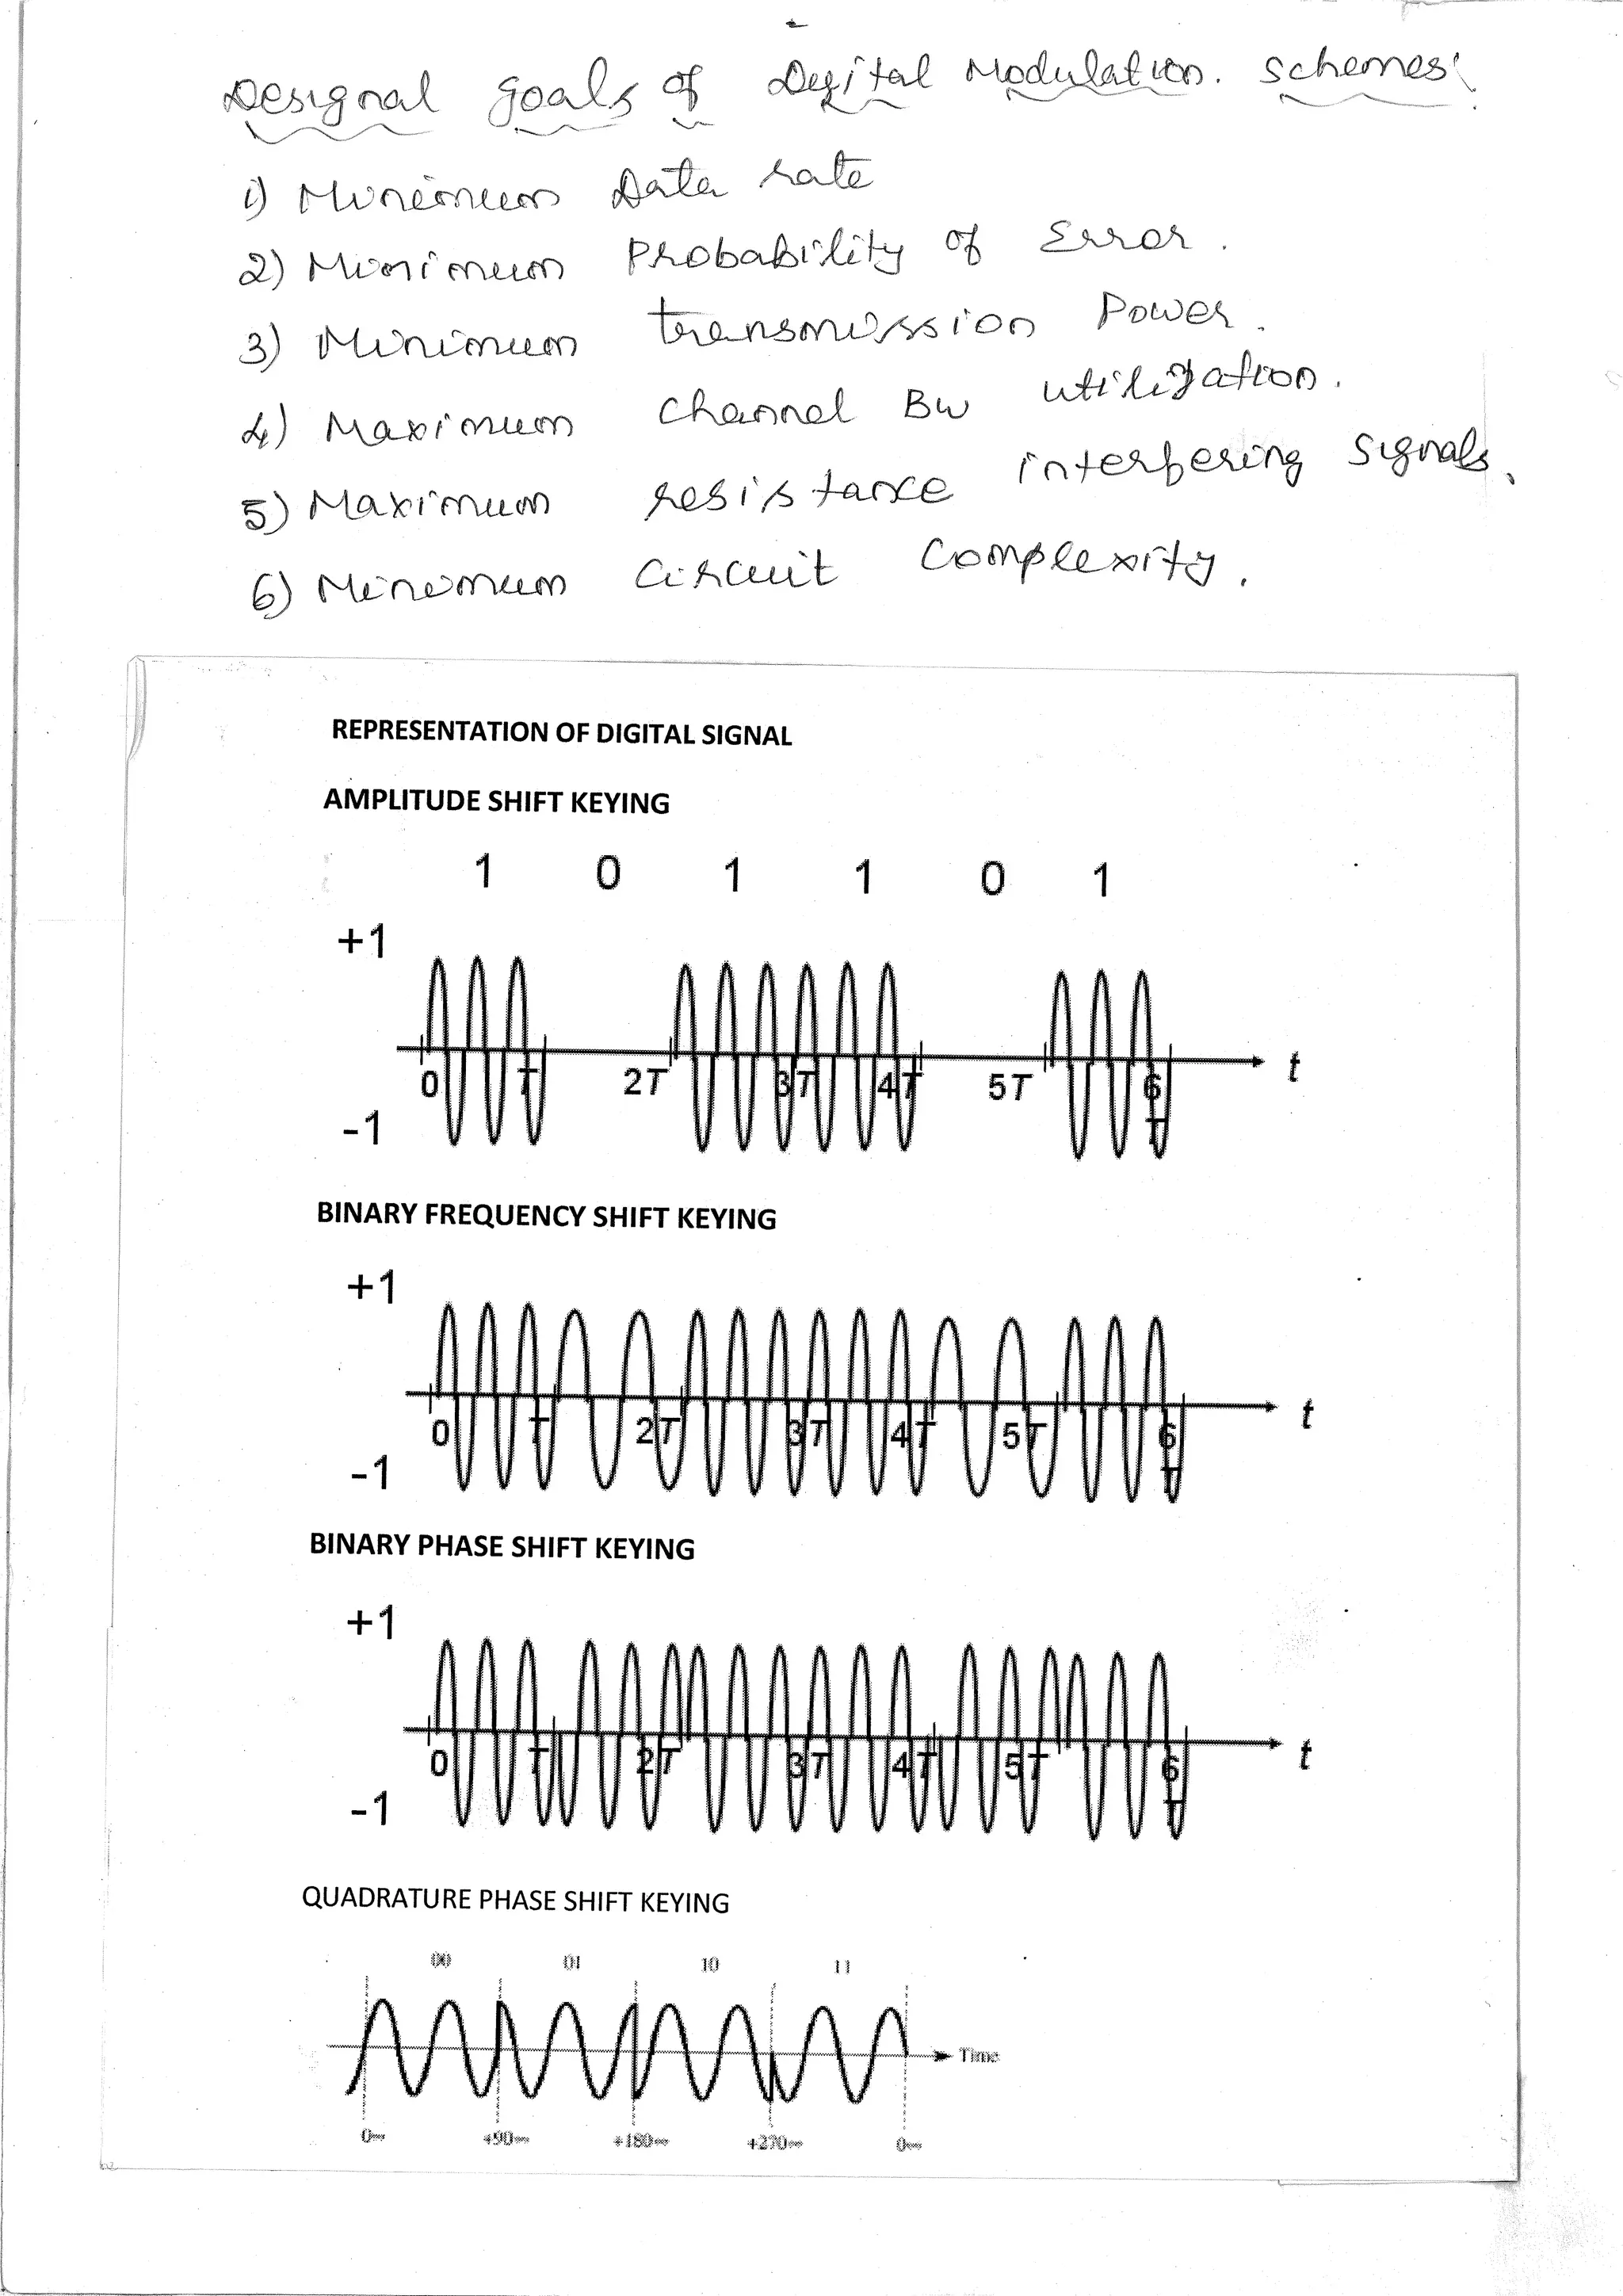 Designal goals of Degital Modulation. schemes:
1) Minimum Data rate
2) Minimum Probability of Error.
3) Minimum transmission Power.
4) Maximum Channel BW utilization.
5) Maximum resistance interfering signals.
6) Minimum Circuit Complexity.
REPRESENTATION OF DIGITAL SIGNAL
AMPLITUDE SHIFT KEYING
1 0 1 1 0 1
+1
0 T 2T 3T 4T 5T 6T t
-1
BINARY FREQUENCY SHIFT KEYING
+1
0 T 2T 3T 4T 5T 6T t
-1
BINARY PHASE SHIFT KEYING
+1
0 T 2T 3T 4T 5T 6T t
-1
QUADRATURE PHASE SHIFT KEYING
00 01 10 11
Time
0 +90 +180 +270 0